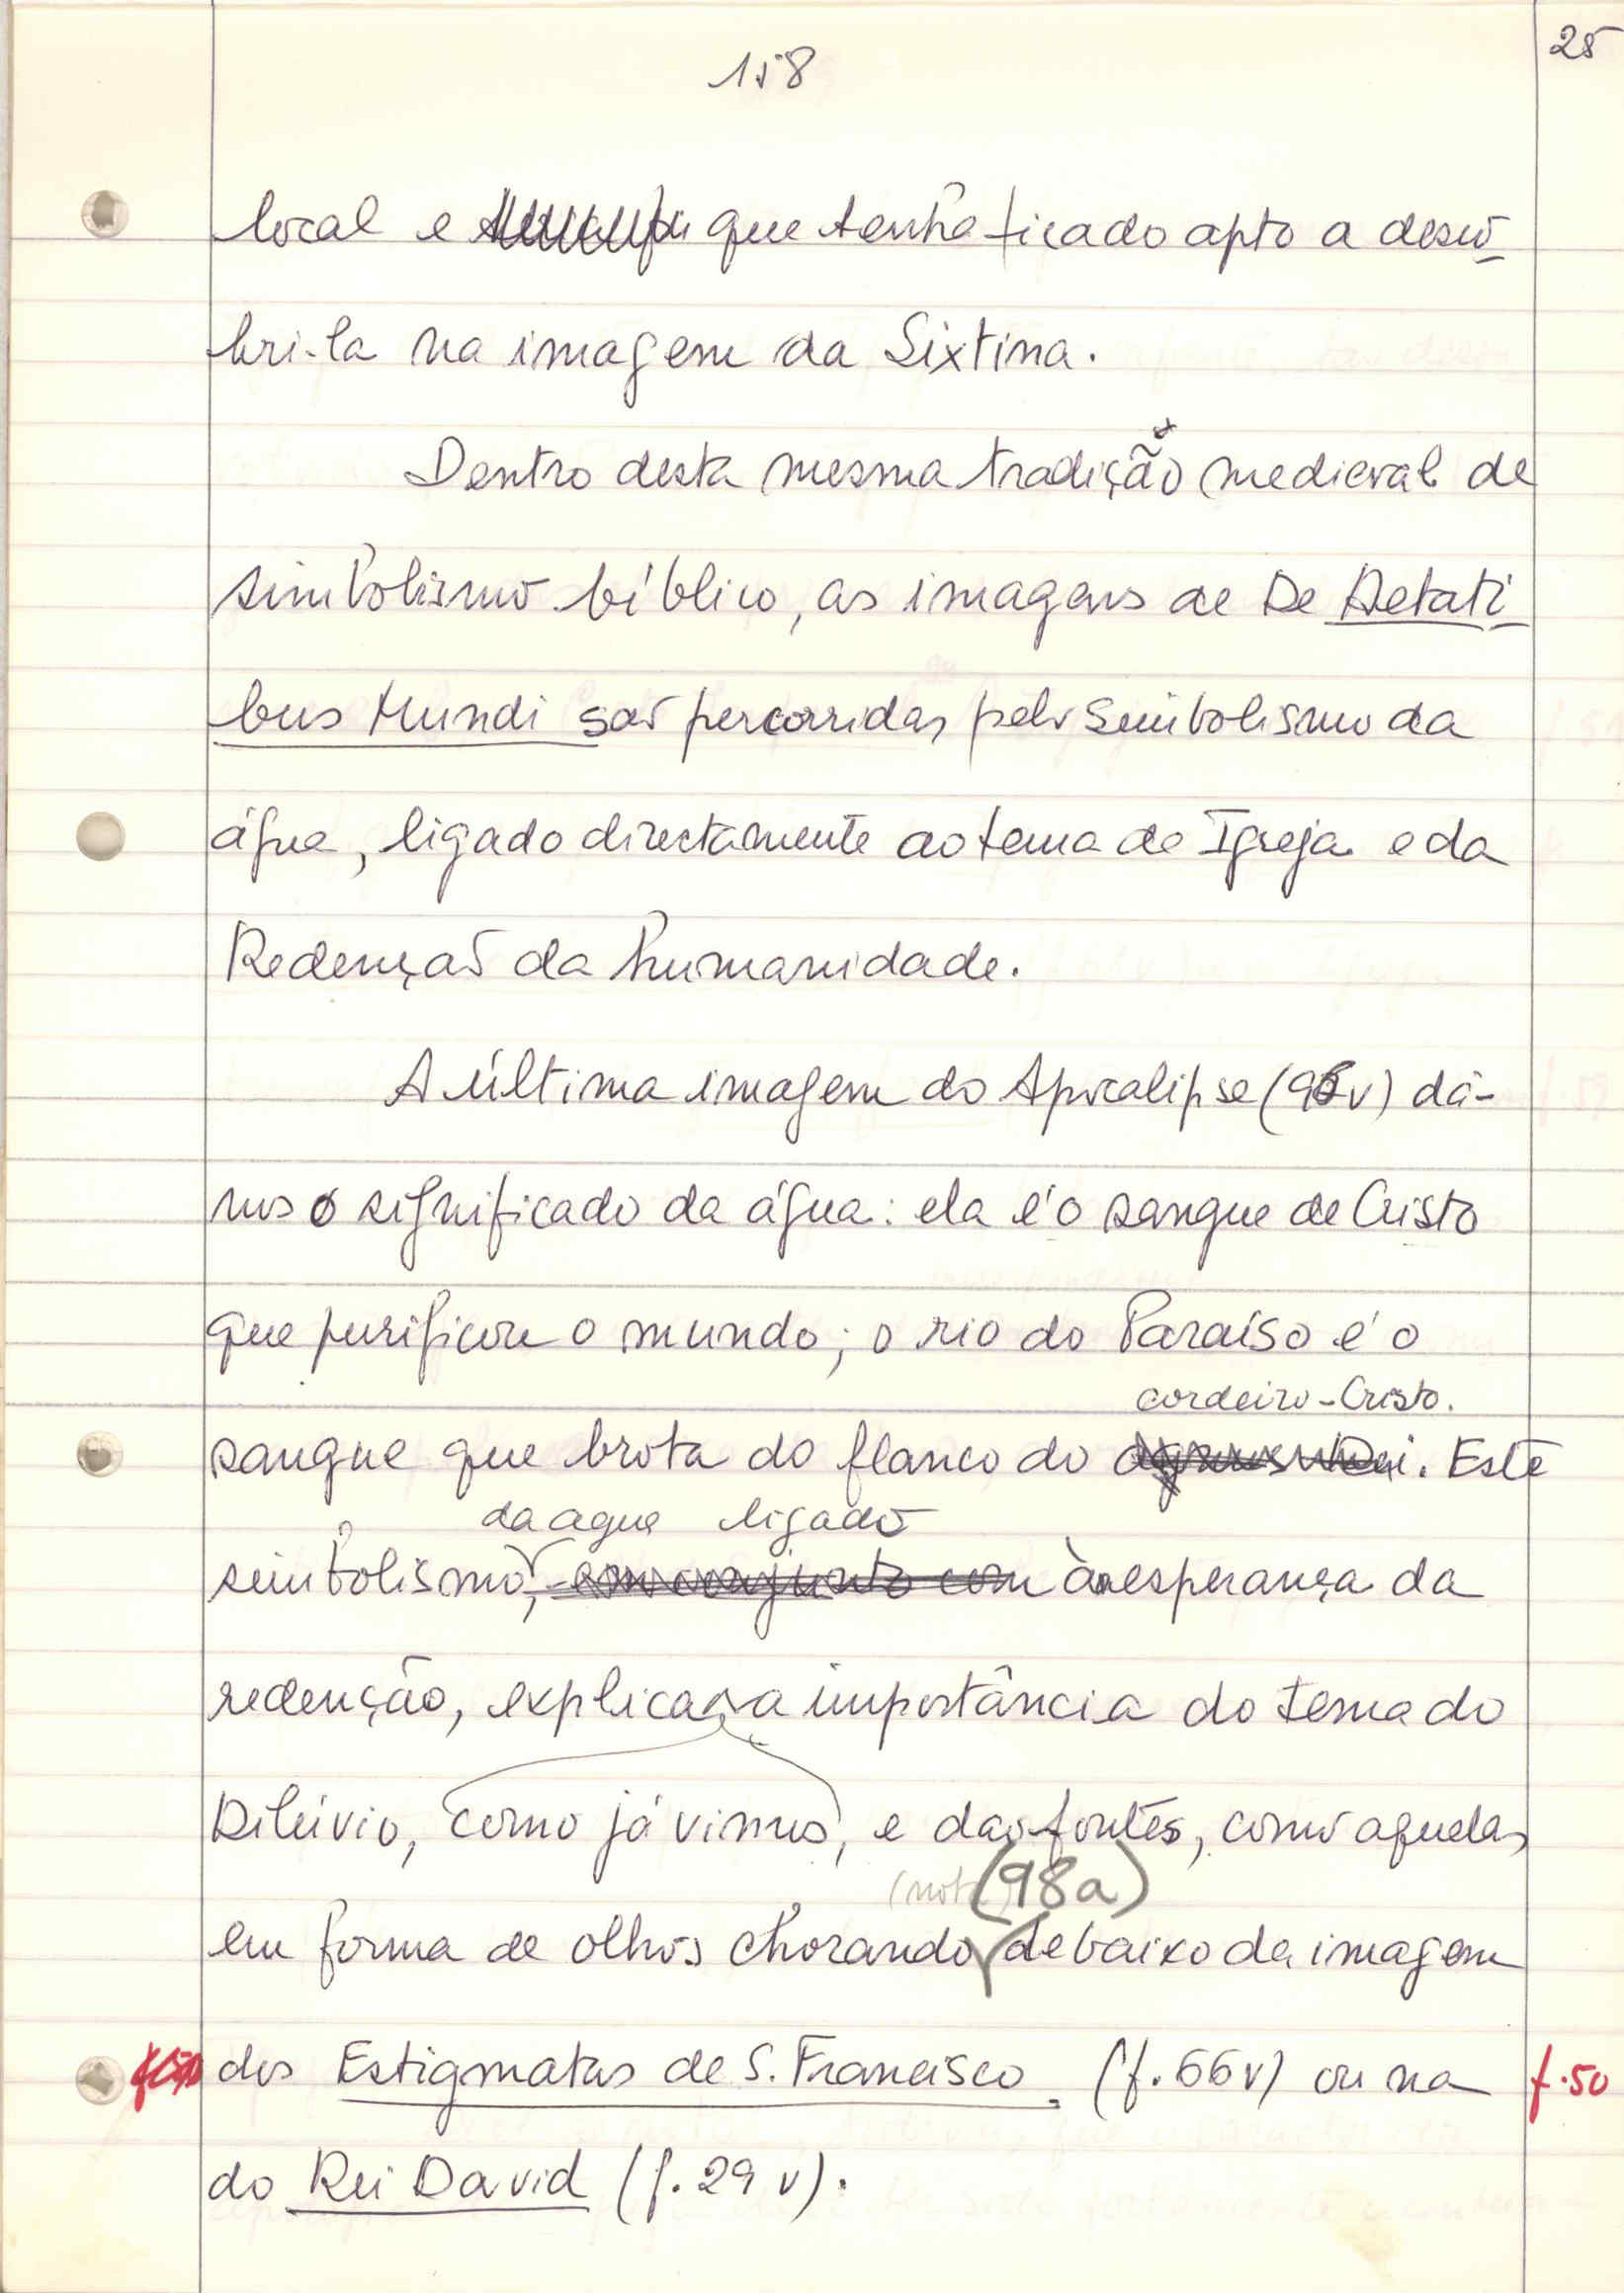 158
25
local e que tenha ficado apto a desco
bri-la na imagem da Sixtina.
Dentro desta mesma tradição medieval de
simbolismo bíblico, as imagens de De Aetati
bus Mundi são percorridas pelo simbolismo da
água, ligado directamente ao tema da Igreja e da
Redenção da humanidade.
A última imagem do Apocalipse (96v) dá-
nos o significado da água: ela é o sangue de Cristo
que purificou o mundo; o rio do Paraíso é o
cordeiro-Cristo.
sangue que brota do flanco do agnus Dei. Este
da agua ligado
simbolismo, em conjunto com à esperança da
redenção, explica a importância do tema do
Dilúvio, como já vimos, e das fontes, como aquelas
(nota (98a)
em forma de olhos chorando debaixo da imagem
dos Estigmatas de S. Francisco. (f.66v) ou na
f.50
do Rei David (f.29 v).